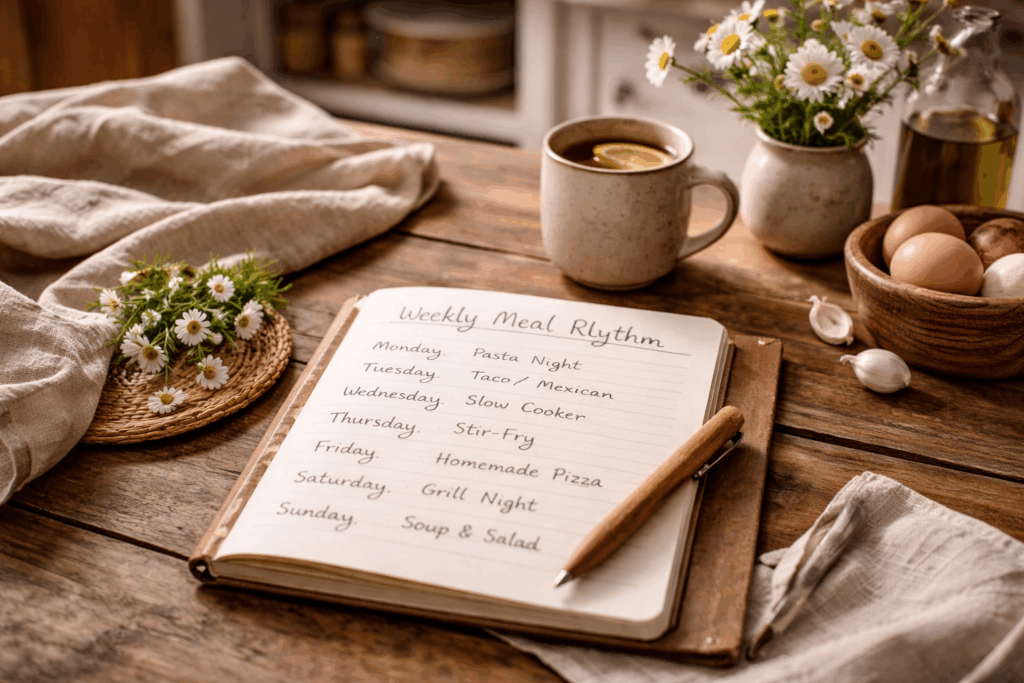 Weekly Meal Rlythm
Monday. Pasta Night
Tuesday. Taco/ Mexican
Wednesday. Slow Cooker
Thursday. Stir-Fry
Friday. Homemade Pizza
Saturday. Grill Night
Sunday. Soup & Salad